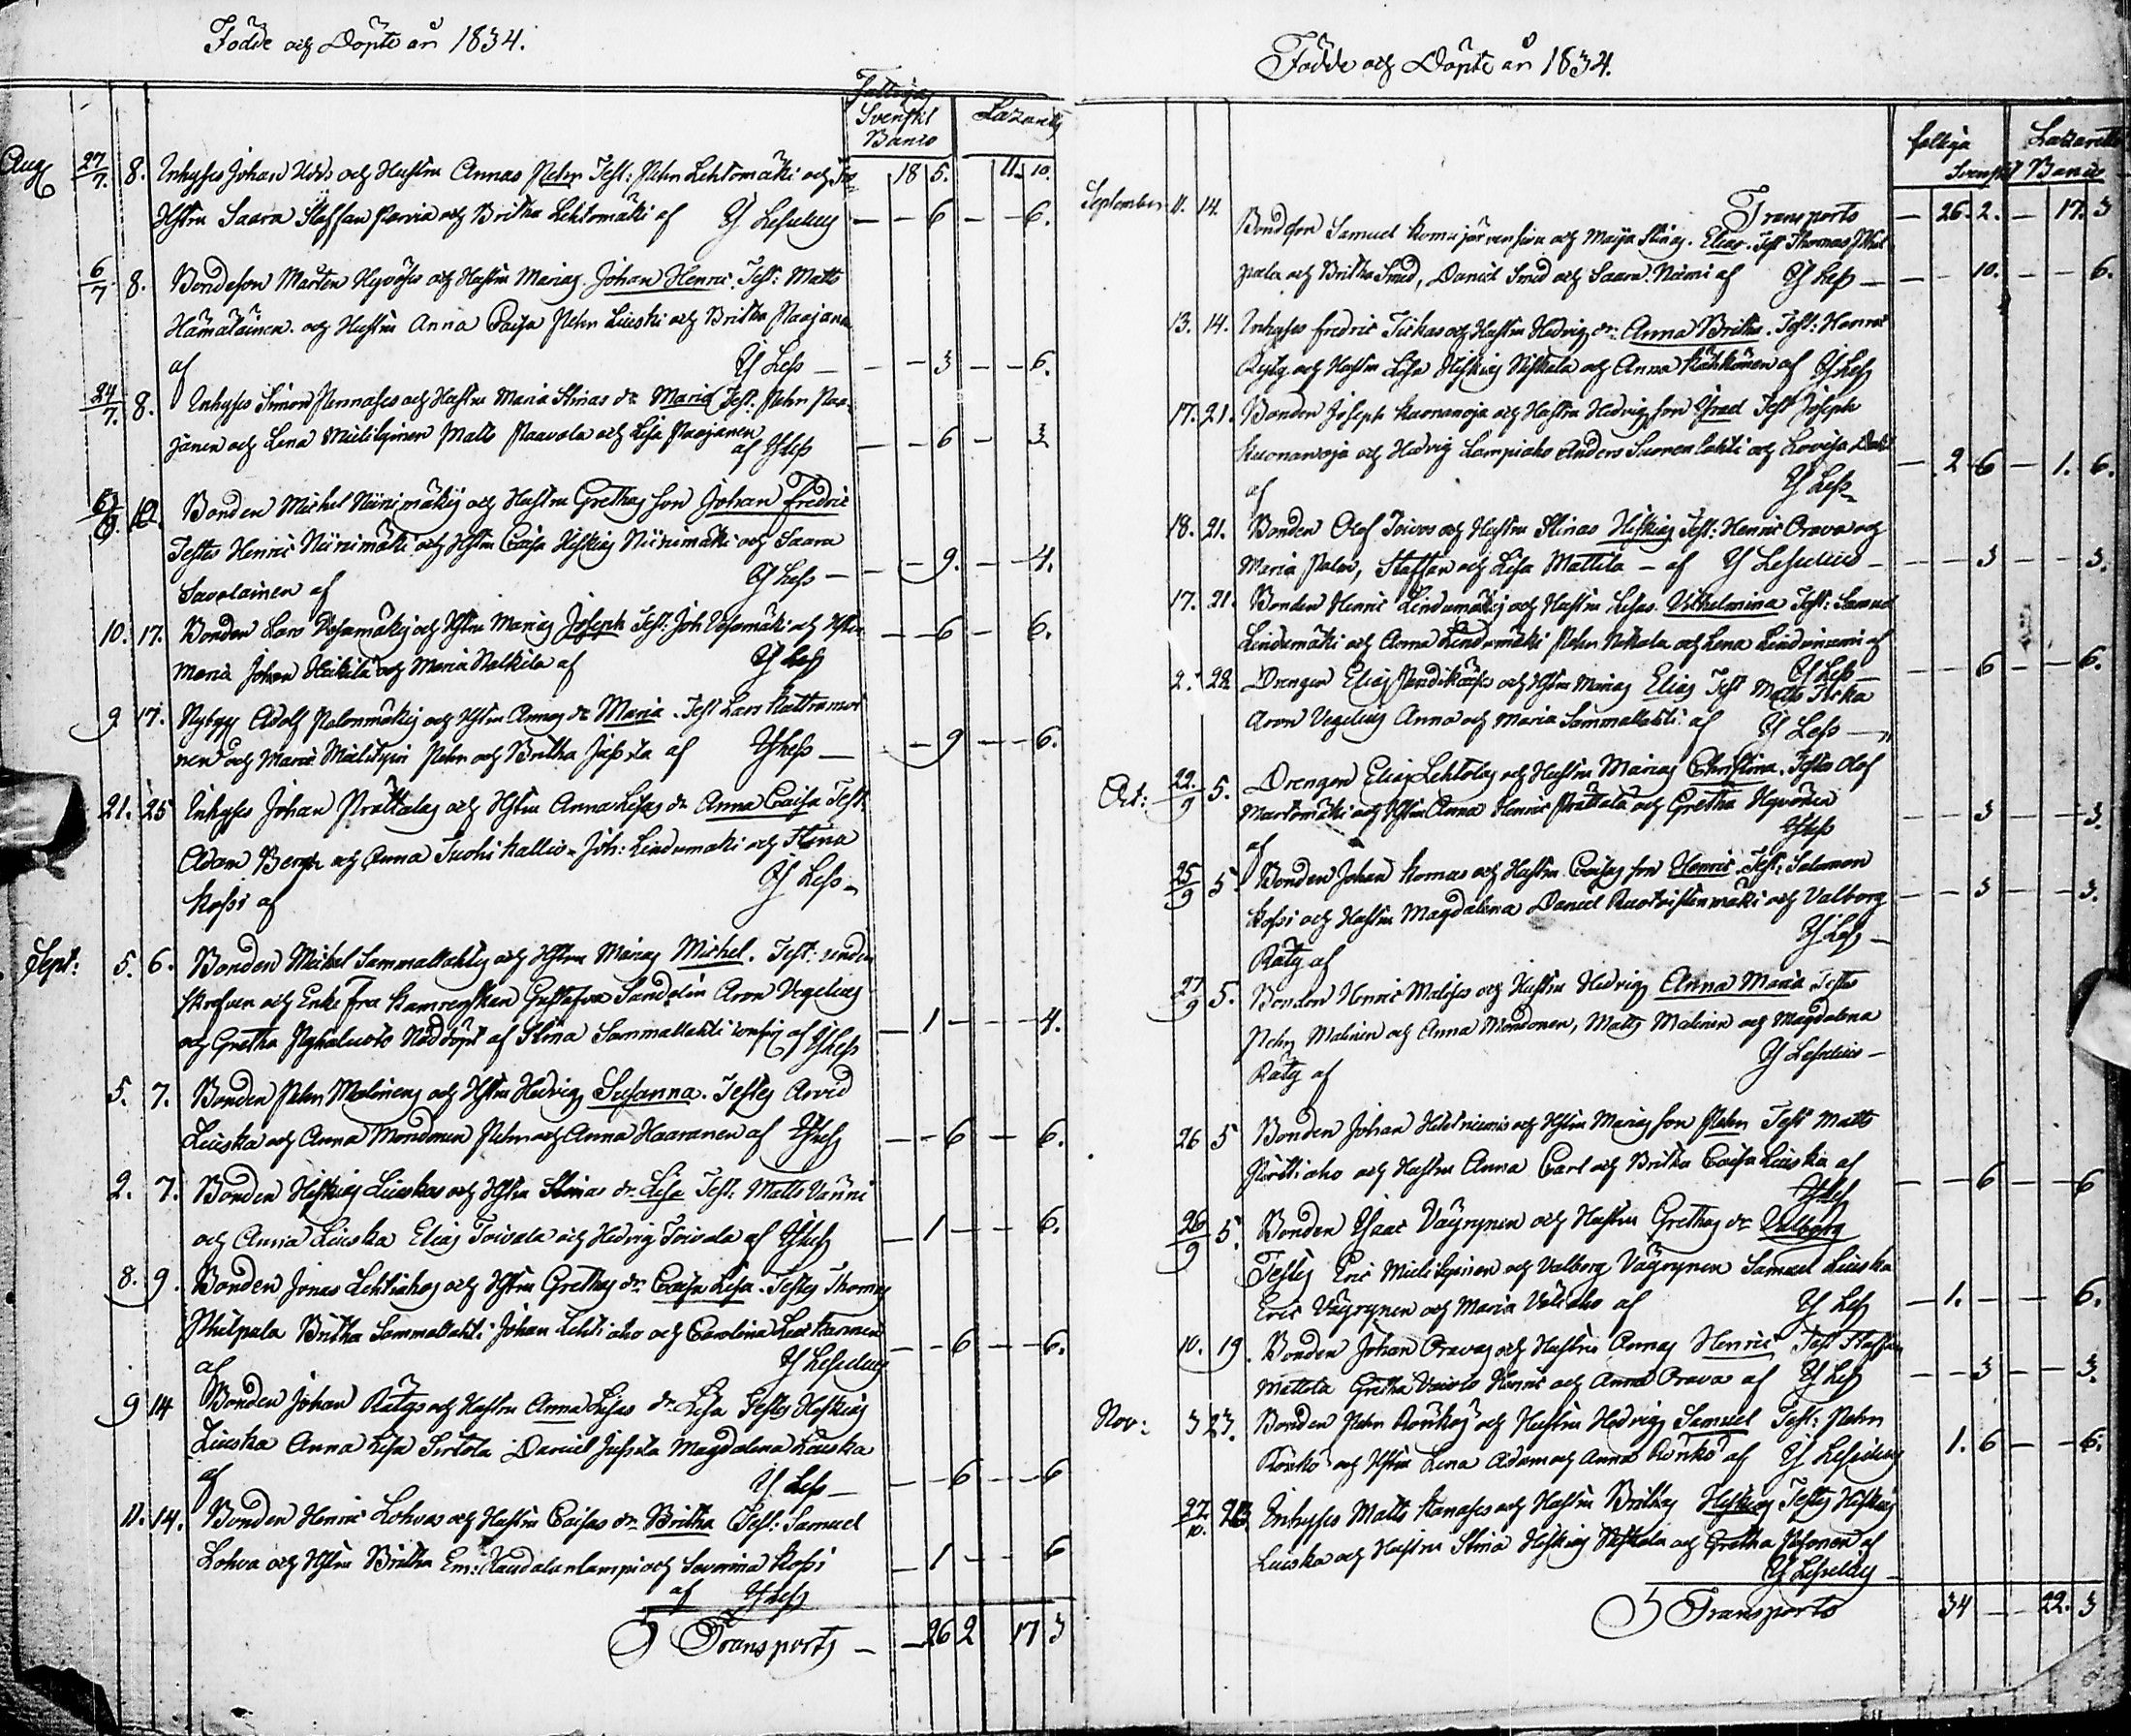 Födde och Döpte år 1834.
Fattiga
Svenskt
Banco
Lazarets
Aug 27/7. 8. Inhyses Johan och Hustru Annas Pehr Test: Pehr Lehtomäki och
18 5. 11. 10.
Hstru Saara Staffan Parvia och Britha Lehtomäki af Is Leſselius — 6 — 6.
6/7 8. Bondeson Mårten Hyvöses och Hustru Marias Johan Henric. Test: Matts
Hämäläinen. och Hustru Anna Caisa Pehr Liuski och Britha Paajanen
af Is Less — 3 — 6.
24/7. 8. Inhyses Simon Pennases och Hustru Maria Stinas dr Maria Test: Pehr Paa-
janen och Lena Mielikyinen Matts Paavola och Lisa Paajanen
af Is Less — 6 — 3
Bonden Michel Niinimäkis och Hustru Grethas son Johan Fredric
Testes Henric Niinimäki och Hstru Caisa Hiskias Niinimäki och Saara
Savolainen af Is Less — 9. — 4.
10. 17. Bonden Lars Vesamäkis och Hstru Marias Joseph Test: Joh Vesamäki och Hstru — 6 — 6.
Maria Johan Heikilä och Maria Nalkila af Is Less
9 17. Nybygg Adolf Palonmäkis och Hstru Annas dr Maria. Test Lars Kattramoi
nen och Maria Mielikyin Pehr och Britha Jussila af Is Less — 9 — 6.
21. 25 Inhyses Johan Prättalas och Hstru Anna Lisas dr Anna Caisa Test:
Adam Bergh och Anna Tuohikallio Joh: Lindumäki och Stina
Kossi af Is Less
Sept: 5. 6. Bonden Michel Sammallahtis och Hstru Marias Michel. Test:
och Enke Fru Kamrerskan Gustafva Sandelin Aron Vegelius
och Gretha Nödöpt af Stina Sammallahti af Is Less — 1 — 4.
5. 7. Bonden Pehr Malinens och Hstru Hedvigs Susanna. Testes Arvid
Liuska och Anna Mondonen Pehr och Anna Haaranen af Is Less — 6 — 6.
2. 7. Bonden Hiskias Liuskas och Hstru Stinas dr Lisa Test: Matts Vänni
och Anna Liuska Elias Toivala och Hedvig Toivala af Is Less — 1 — 6.
8. 9. Bonden Jonas Lehtiahos och Hstru Grethas dr Caisa Lisa. Testes Thomas
Philpala Britha Sammallahti Johan Lehtiaho och Carolina
af Is Leſselius — 6 — 6.
9 14 Bonden Johan Rätys och Hustru Anna Lisas dr Lisa Testes Hiskias
Liuska Anna Lisa Sirtola Daniel Jussila Magdalena Liuska
af Is Less — 6 — 6
11. 14. Bonden Henric Lohvas och Hustru Caisas dr Britha Test: Samuel
Lohva och Hstru Britha Em: Haudalanlampi och Severina Kossi — 1 — 6
af Is Less
Transports — 26 2 17 3
Födde och Döpte år 1834.
fattiga Lazarett
Svenskt Banco
Transporto — 26. 2. — 17. 3
September 11. 14. Bondeson Samuel Komujärvensivu och Maija Stinas. Elias. Test Thomas Phil
pala och Britha Smed, Daniel Smed och Saara Niemi af Is Less — 10. — 6.
13. 14. Inhyses Fredric Tiskas och Hustru Hedvig dr: Anna Britha. Test: Henric
och Hustru Lisa Hiskias Niskala och Anna Kähkönen af Is Less
17. 21. Bonden Joseph Kuonanojas och Hustru Hedvigs son Israel Test Joseph
Kuonanoja och Hedvig Lampiaho Anders Suonenlahti och Lovisa
af Is Less — 2 6 — 1. 6.
18. 21. Bonden Olof Toivos och Hustru Stinas Hiskias Test: Henric Orava och
Maria Palm, Staffan och Lisa Mattila — af Is Leſselius — 3 — 3.
17. 21. Bonden Henric Lindumäkis och Hustru Lisas. Vilhelmina Test: Samuel
Lindumäki och Anna Lindumäki Pehr Niskala och Lena Linduniemi af
Is Less — 6 — 6.
2. 28 Drengen Elias och Hstru Marias Elias Test Matts Tiska
Aron Vegelius Anna och Maria Sammallahti af Is Less —
Oct: 22./9 5. Drengen Elias Lehtolas och Hustru Marias Christina. Testes Olof
Martomäki och Hstru Anna Henric Prättälä och Gretha Hyvönen
af Is Less — 3 — 3.
25/9 5. Bonden Johan Komas och Hustru Caisas son Henric. Test: Salomon
Kossi och Hustru Magdalena Daniel Ruotsistenmäki och Valborg — 3 — 3.
Räty af Is Less
27/9 5. Bonden Henric Malises och Hustru Hedvigs Anna Maria Testes
Pehr Malinen och Anna Mondonen, Matts Malinen och Magdalena
Räty af Is Leſselius —
26 5 Bonden Johan Hietaniemis och Hstru Marias son Pehr Test Matts
Pörttiaho och Hustru Anna Carl och Britha Caisa Liuska af
Is Less — 6 — 6
26/9 5. Bonden Isaac Väyrynen och Hustru Grethas dr Valborg
Testes Eric Mielikyinen och Valborg Väyrynen Samuel Liuska
Eric Väyrynen och Maria Väliaho af Is Less — 1. — 6.
10. 19. Bonden Johan Oravas och Hustru Annas Henric Test Staffan
Mattila Gretha Henric och Anna Orava af Is Less — 3 — 3.
Nov: 3 23. Bonden Pehr Rönkös och Hustru Hedvigs Samuel Test: Pehr
Rönkö och Hstru Lena Adam och Anna Rönkö af Is Leſselius 1. 6 — 6.
27/10. 23 Inhyses Matts Kanases och Hustru Brithas Hiskias Testes Hiskias
Liuska och Hustru Stina Hiskias Niskala och Gretha af
Is Leſselius
Transporto 34 — 22. 3